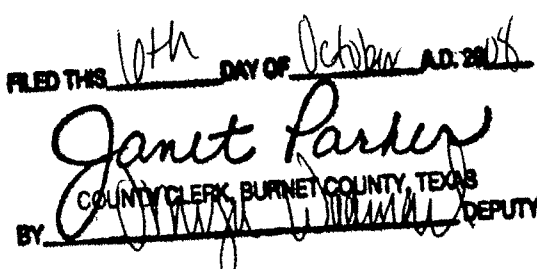 FILED THIS 6th DAY OF October A.D. 2008
Janet Parker
COUNTY CLERK, BURNET COUNTY, TEXAS
BY DEPUTY